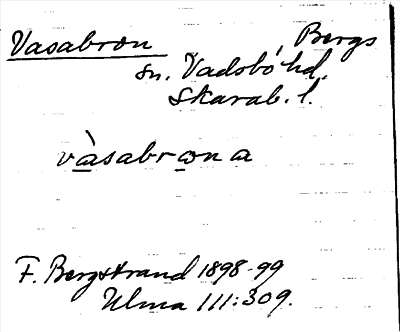 Vasabron, Bergs
sn. Vadsbo hd.
Skarab. l.
vàsabrωna
F. Bergstrand 1898-99
Ulma 111:309.